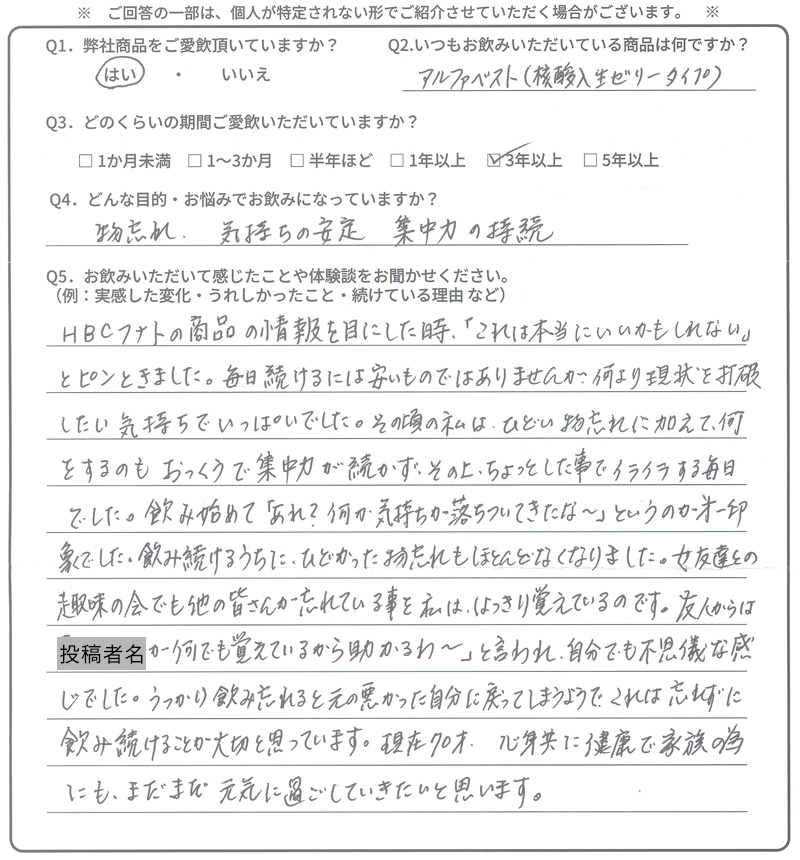 ※　ご回答の一部は、個人が特定されない形でご紹介させていただく場合がございます。　※
Q1．弊社商品をご愛飲頂いていますか？　Q2.いつもお飲みいただいている商品は何ですか？
はい　・　いいえ　アルファベスト(核酸入生ゼリータイプ)
Q3．どのくらいの期間ご愛飲いただいていますか？
□ 1か月未満　□ 1〜3か月　□ 半年ほど　□ 1年以上　☑ 3年以上　□ 5年以上
Q4．どんな目的・お悩みでお飲みになっていますか？
物忘れ.　気持ちの安定　集中力の持続
Q5．お飲みいただいて感じたことや体験談をお聞かせください。
（例：実感した変化・うれしかったこと・続けている理由 など）
HBCフナトの商品の情報を目にした時、「これは本当にいいかもしれない」
とピンときました。毎日続けるには安いものではありませんが、何より現状を打破
したい気持ちでいっぱいでした。その頃の私は、ひどい物忘れに加えて、何
をするのもおっくうで集中力が続かず、その上、ちょっとした事でイライラする毎日
でした。飲み始めて「あれ？何か気持ちが落ちついてきたな〜」というのが第一印
象でした。飲み続けるうちに、ひどかった物忘れもほとんどなくなりました。女友達との
趣味の会でも他の皆さんが忘れている事を私は、はっきり覚えているのです。友人からは
「投稿者名が何でも覚えているから助かるわ〜」と言われ、自分でも不思儀な感
じでした。うっかり飲み忘れると元の悪かった自分に戻ってしまうようで、これは忘れずに
飲み続けることが大切と思っています。現在70才、心身共に健康で家族の為
にも、まだまだ元気に過ごしていきたいと思います。